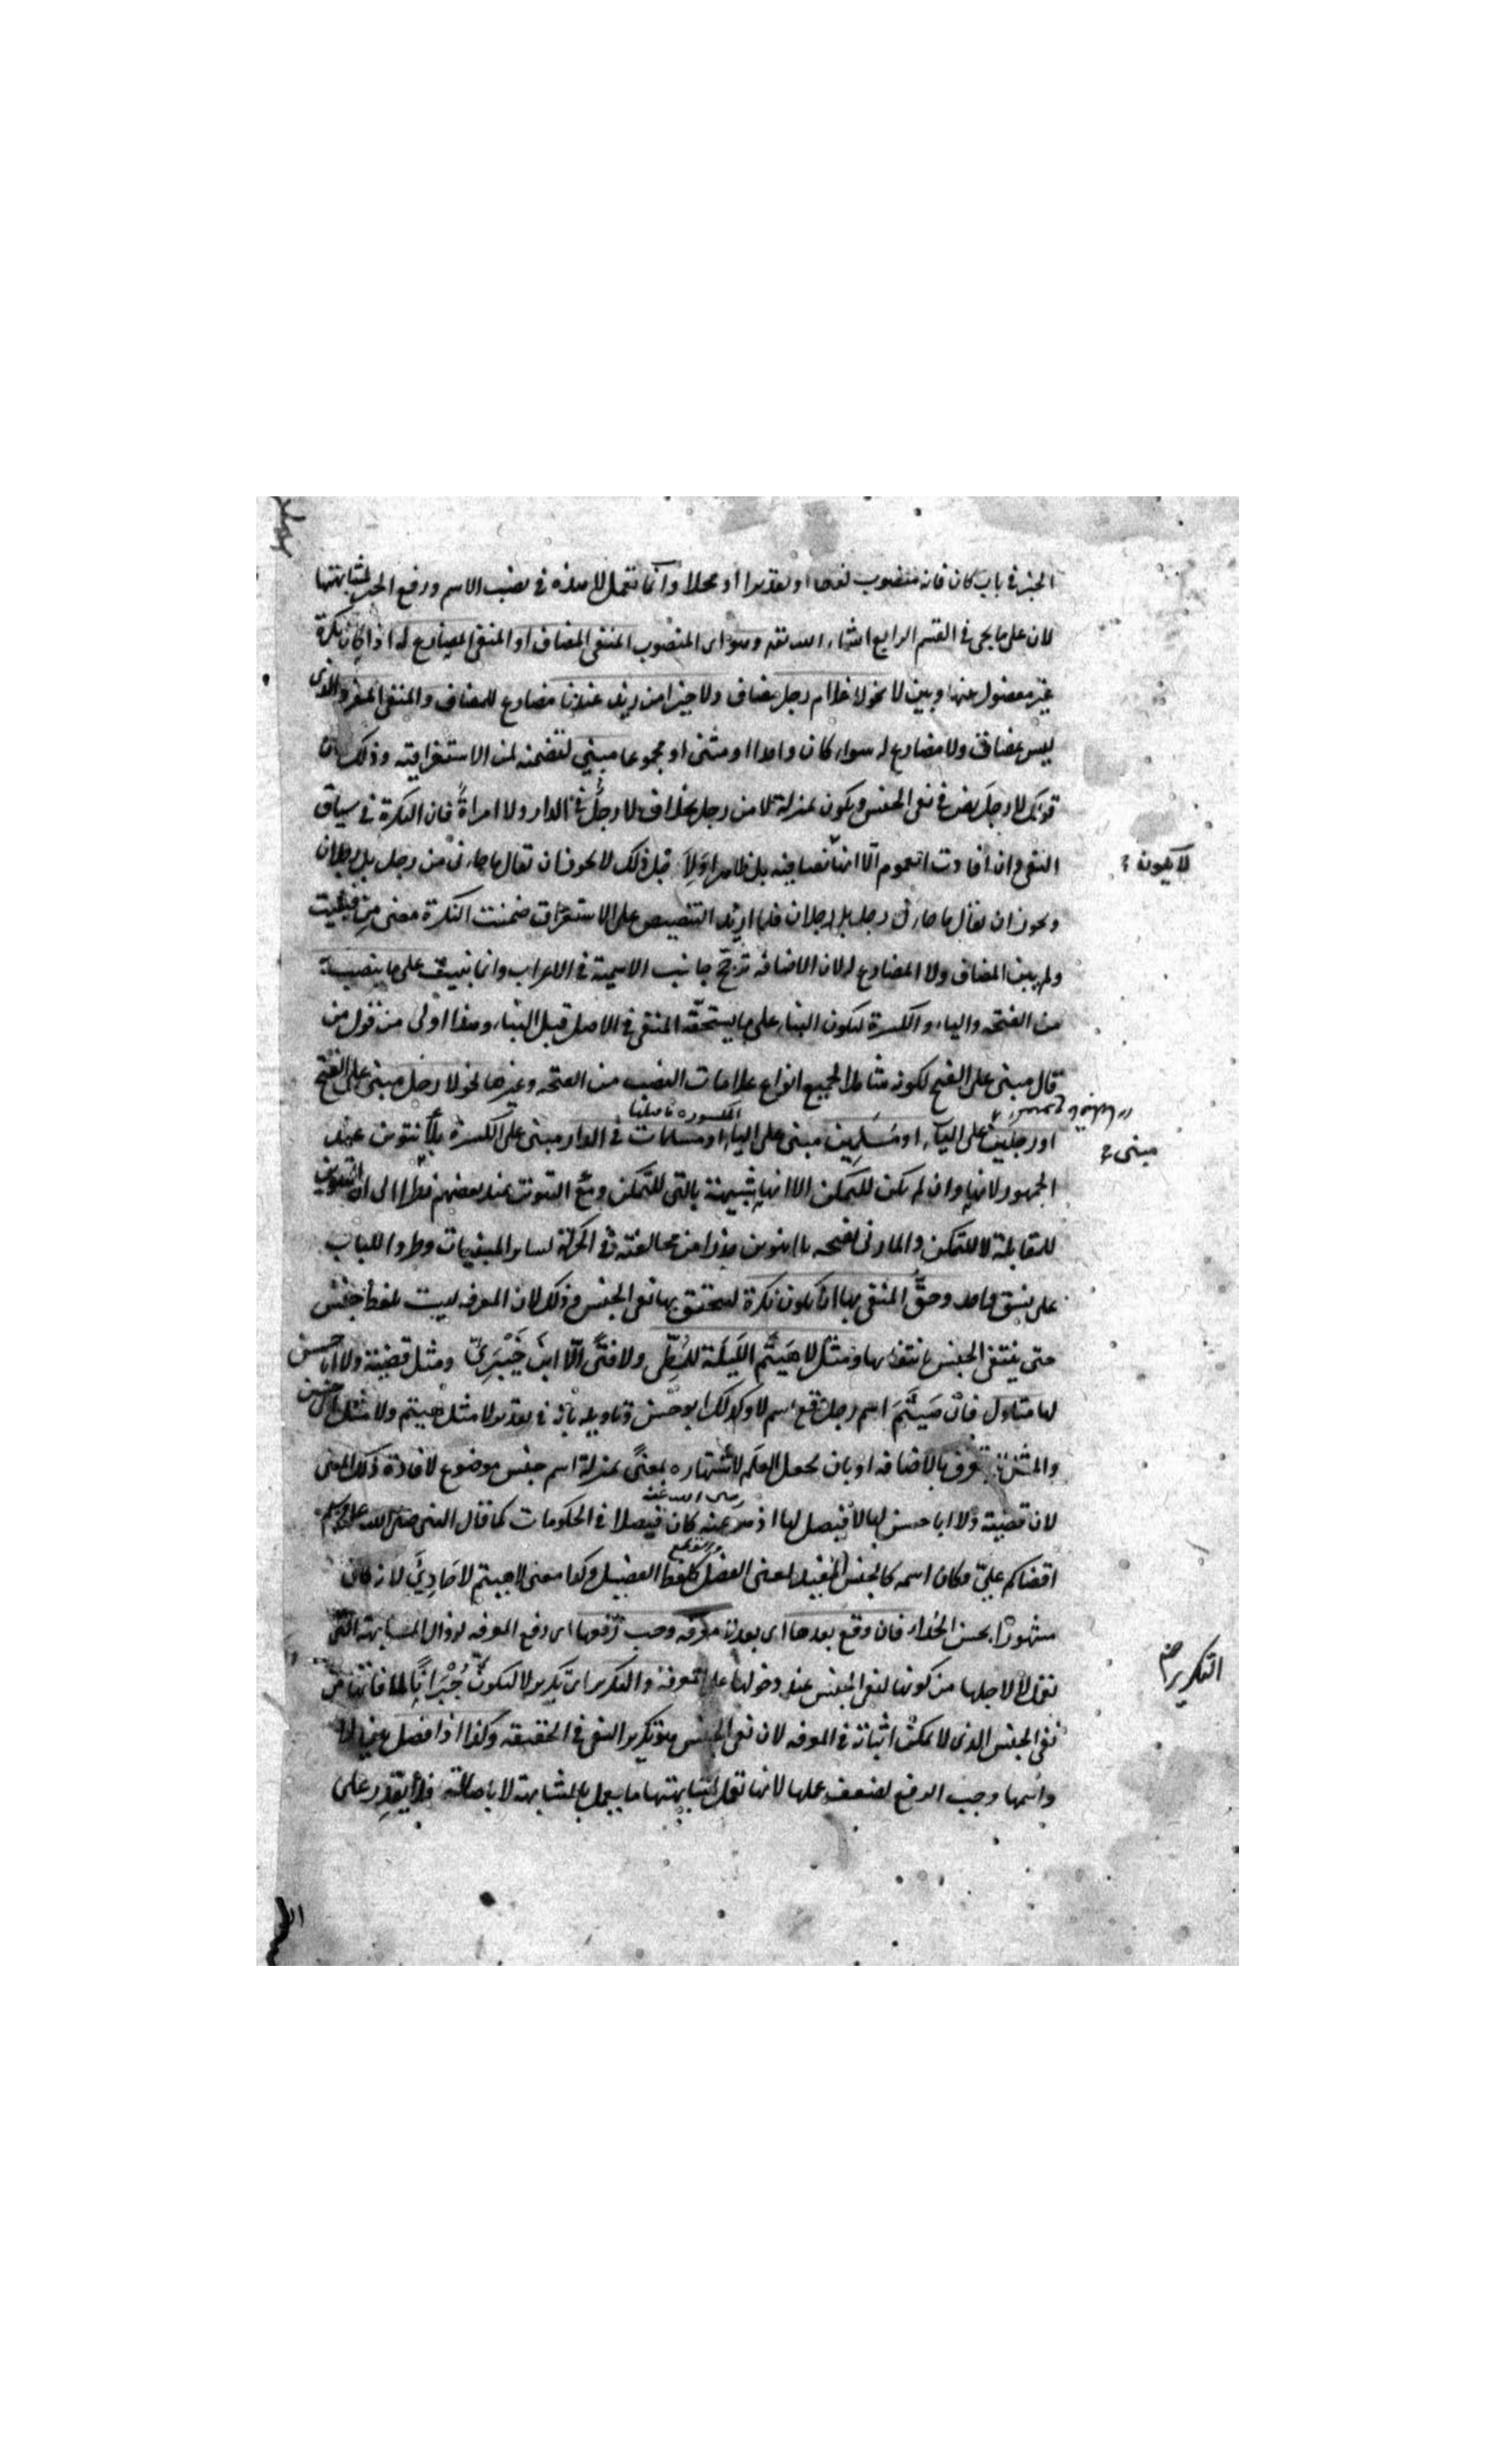 الخبر في باب كان فانه منصوب لفظا او تقديرا او محلا وانما تعمل لا هذه في نصب الاسم ورفع الخبر لمشابهتها
لان على ما يجئ في القسم الرابع انشاء الله تعه وهو اى المنصوب المنفى المضاف او المنفى المضارع له اذا كان نكرة
غير مفصول عنها وبين لا نحو لا غلام رجل مضاف ولا خيرا من زيد عندنا مضارع للمضاف والمنفى المفرد الذى
ليس بمضاف ولا مضارع له سواء كان واحدا او مثنى او مجموعا مبنى لتضمنه لمن الاستغراقية وذلك لان
قولك لا رجلَ نص في نفى الجنس ويكون بمنزلة لا من رجل بخلاف لا رجلٌ في الدار ولا امراةٌ فان النكرة في سياق
النفى وان افادت العموم الّا انها نصا فيه بل ظاهرا ولا قبل ذلك لا يجوز ان تقال ما جاءنى من رجل بل رجلان
لا يكون
ويجوز ان يقال ما جاءنى رجل بل رجلان فلما اريد التنصيص على الاستغراق ضمنت النكرة معنى مِن فبنيت
ولم يبن المضاف ولا المضارع له لان الاضافه ترجح جانب الاسمية في الاعراب وانما بنيت على ما ينصب به
من الفتحه والياء والكسرة ليكون البناء على ما يستحقه المنفى في الاصل قبل البناء وهذا اولى من قول من
قال مبنى على الفتح لكونه شاملا لجميع انواع علامات النصب من الفتحه وغيرها نحو لا رجل مبنى على الفتح
المكسورة ما قبلها
او رجلين على الياء او مسلِمِين مبنى على الياء او مسلمات في الدار مبنى على الكسرة بلا تنوين عند
مبنى
الجمهور لانها وان لم يكن للتمكن الا انها شبيهة بالتى للتمكن ومع التنوين عند بعضهم نظرا الى ان التنوين
للمقابلة لا للتمكن والمازنى يفتحه بلا تنوين حذرا من مخالفته في الحركة لسائر المبنيات وطردا للباب
على نسق واحد وحقُّ المنفى بها ان يكون نكرة ليتحقق بها نفى الجنس وذلك لان المعرفه ليست لفظ جنس
حتى ينتفى الجنس بانتفائها ومثل لا هَيْثَمَ الليلة للمطىّ ولا فتًى الّا ابن خَيْبَرِىّ ومثل قضية ولا ابا حسن
لها متاول فانّ هَيْثَمَ اسم رجل وقع اسم لا وكذلك ابو حسن وتاويله بان في تقدير لا مثل هيثم ولا مثل ابى حسن
والمثل لا يتعرف بالاضافه او بان يجعل العلَم لاشتهاره بمعنًى بمنزلة اسم جنس موضوع لافادة ذلك المعنى
رضى الله عنه
لان قضية ولا ابا حسن لها لا فيصل لها اذ هو كان فيصلا في الحكومات كما قال النبى صلى الله عليه وسلم
اقضاكم علىّ فكان اسمه كالجنس المفيد لمعنى الفصل كلفظ الفيصل وكذا معنى لا هيثم لا حادِىَ لانه كان
مشهورًا بحسن الحُداء فان وقع بعدها اى بعد لا معرفه وجب رفعها اى رفع المعرفه لزوال المشابهة التى
تعمل لا لاجلها من كونها لنفى الجنس عند دخولها على المعرفة والتكرير اى تكرير لا ليكون جُبْرَانًا لما فاتها من
التكرير
نفى الجنس الذى لا يمكن اثباته في المعرفه لان نفى الجنس هو تكرير النفى في الحقيقه وكذا اذا فصل بين لا
واسمها وجب الرفع لضعف عملها لانها تعمل لمشابهتها ما يعمل بالمشابهة لا باصالته فلا يقدر على